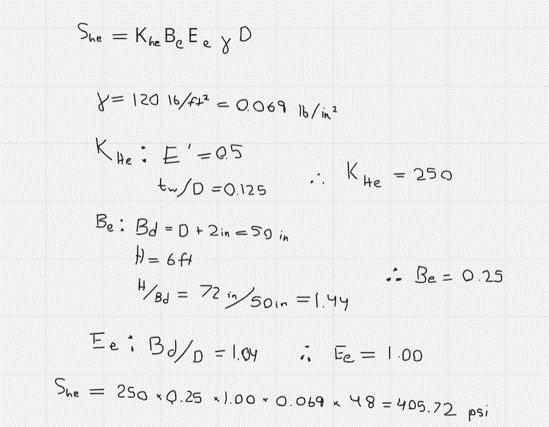 She = Khe Be Ee γ D
γ = 120 lb/ft² = 0.069 lb/in²
KHe : E' = 0.5
tw/D = 0.125
∴ KHe = 250
Be : Bd = D + 2in = 50 in
H = 6 ft
H/Bd = 72 in/50in = 1.44
∴ Be = 0.25
Ee : Bd/D = 1.04 ∴ Ee = 1.00
She = 250 × 0.25 × 1.00 × 0.069 × 48 = 405.72 psi